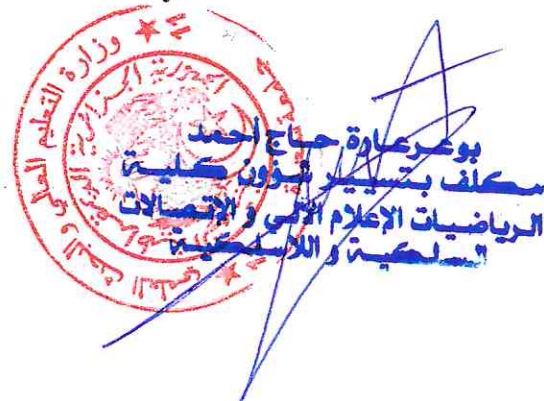 وزارة التعليم العالي و البحث العلمي
الجمهورية الجزائرية
بوعرعارة حاج احمد
مكلف بتسيير شؤون كليـة
الرياضيات الإعلام الآلي و الإتصالات
السلكية و اللاسلكية